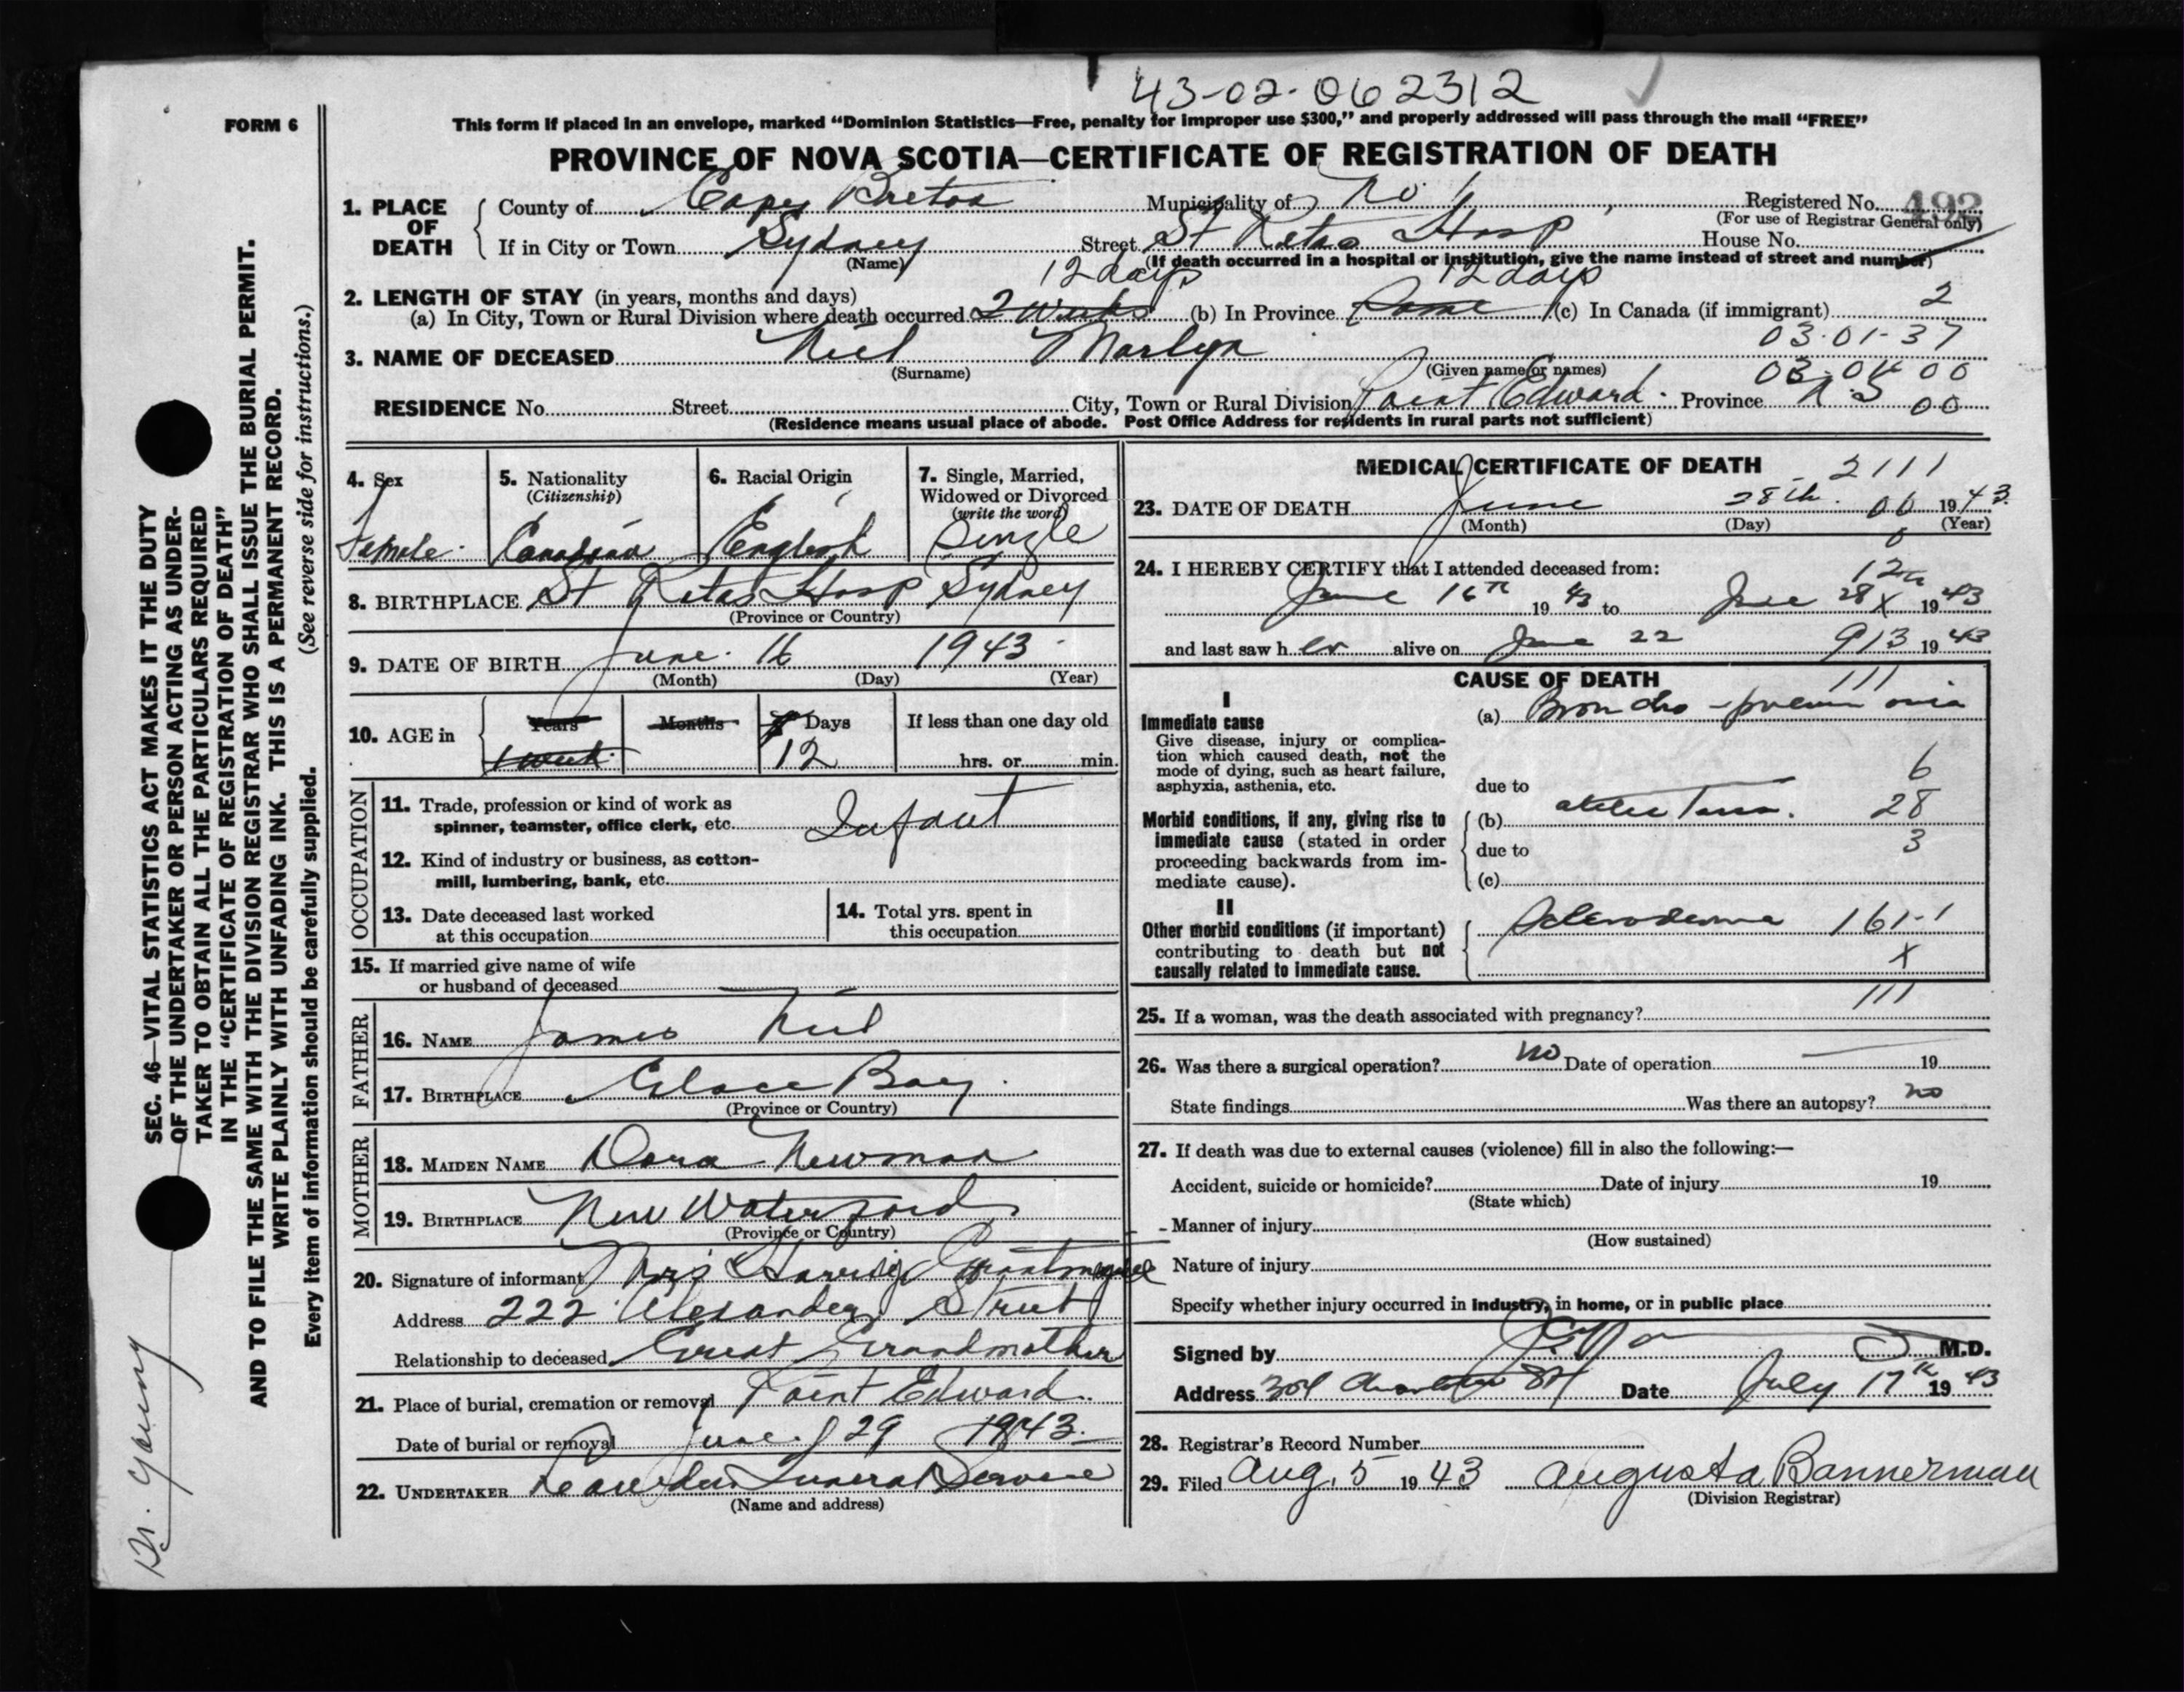 43-02-062312
FORM 6
This form if placed in an envelope, marked “Dominion Statistics—Free, penalty for improper use $300,” and properly addressed will pass through the mail “FREE”
PROVINCE OF NOVA SCOTIA—CERTIFICATE OF REGISTRATION OF DEATH
1. PLACE OF DEATH
County of Cape Breton Municipality of No. 1 Registered No. 492
(For use of Registrar General only)
If in City or Town Sydney Street St Ritas Hosp House No.
(Name) (If death occurred in a hospital or institution, give the name instead of street and number)
12 days 12 days
2. LENGTH OF STAY (in years, months and days)
(a) In City, Town or Rural Division where death occurred 2 Weeks (b) In Province Same (c) In Canada (if immigrant) 2
03-01-37
3. NAME OF DECEASED Neil Marlyn
(Surname) (Given name or names) 03-04 00
RESIDENCE No. Street City, Town or Rural Division Point Edward Province N S 00
(Residence means usual place of abode. Post Office Address for residents in rural parts not sufficient)
4. Sex Female
5. Nationality (Citizenship) Canadian
6. Racial Origin English
7. Single, Married, Widowed or Divorced (write the word) Single
8. BIRTHPLACE St Ritas Hosp Sydney
(Province or Country)
9. DATE OF BIRTH June 16 1943
(Month) (Day) (Year)
10. AGE in Years Months Days If less than one day old
1 week 12 hrs. or min.
OCCUPATION
11. Trade, profession or kind of work as spinner, teamster, office clerk, etc. Infant
12. Kind of industry or business, as cotton-mill, lumbering, bank, etc.
13. Date deceased last worked at this occupation
14. Total yrs. spent in this occupation
15. If married give name of wife or husband of deceased
FATHER
16. NAME James Neil
17. BIRTHPLACE Glace Bay
(Province or Country)
MOTHER
18. MAIDEN NAME Dora Newman
19. BIRTHPLACE New Waterford
(Province or Country)
20. Signature of informant Mrs
Address 222 Alexander Street
Relationship to deceased Great Grandmother
21. Place of burial, cremation or removal Point Edward
Date of burial or removal June 29 1943
22. UNDERTAKER Funeral Service
(Name and address)
MEDICAL CERTIFICATE OF DEATH 2111
23. DATE OF DEATH June 28th 06 1943
(Month) (Day) (Year)
24. I HEREBY CERTIFY that I attended deceased from:
June 16th 1943 to June 28 X 1943
and last saw her alive on June 22 913 1943
CAUSE OF DEATH 111
I
Immediate cause
Give disease, injury or complication which caused death, not the mode of dying, such as heart failure, asphyxia, asthenia, etc.
(a) Broncho-pneumonia
due to 6
Morbid conditions, if any, giving rise to immediate cause (stated in order proceeding backwards from immediate cause).
(b) 28
due to 3
(c)
II
Other morbid conditions (if important) contributing to death but not causally related to immediate cause.
Scleroderma 161-1
X
111
25. If a woman, was the death associated with pregnancy?
26. Was there a surgical operation? no Date of operation 19
State findings Was there an autopsy? no
27. If death was due to external causes (violence) fill in also the following:—
Accident, suicide or homicide? Date of injury 19
(State which)
Manner of injury
(How sustained)
Nature of injury
Specify whether injury occurred in industry, in home, or in public place
Signed by M.D.
Address Date July 17th 1943
28. Registrar's Record Number
29. Filed Aug. 5 1943 Augusta Bannerman
(Division Registrar)
SEC. 46—VITAL STATISTICS ACT MAKES IT THE DUTY
OF THE UNDERTAKER OR PERSON ACTING AS UNDER-
TAKER TO OBTAIN ALL THE PARTICULARS REQUIRED
IN THE “CERTIFICATE OF REGISTRATION OF DEATH”
AND TO FILE THE SAME WITH THE DIVISION REGISTRAR WHO SHALL ISSUE THE BURIAL PERMIT.
WRITE PLAINLY WITH UNFADING INK. THIS IS A PERMANENT RECORD.
Every item of information should be carefully supplied. (See reverse side for instructions.)
Dr. Young